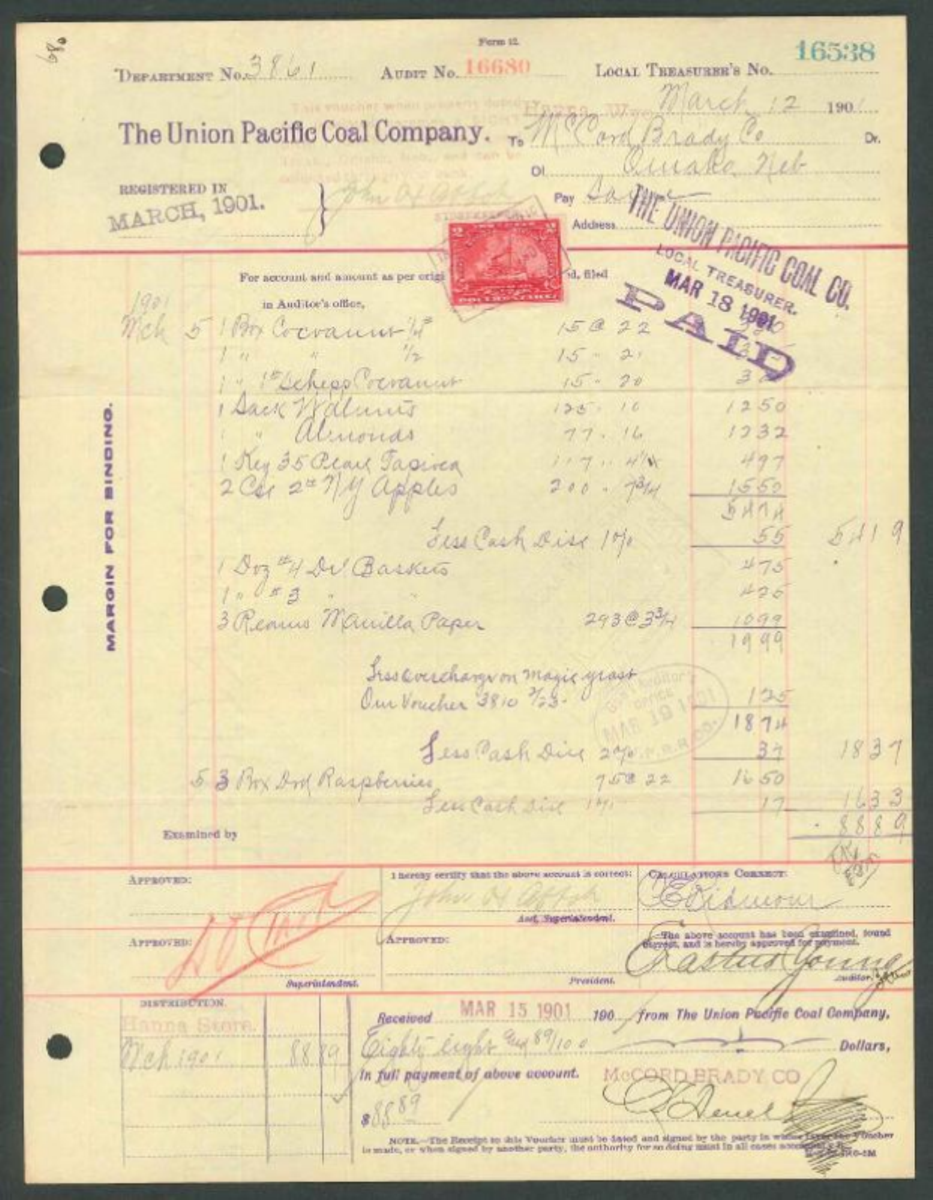 680
Form 12.
16538
DEPARTMENT No. 3861 AUDIT No. 16680 LOCAL TREASURER'S No.
Hanna, Wyo. March 12 1901
The Union Pacific Coal Company. To McCord Brady Co Dr.
Of Omaha Neb
REGISTERED IN
MARCH, 1901.
Pay Same
Address
THE UNION PACIFIC COAL CO.
LOCAL TREASURER.
MAR 18 1901
PAID
For account and amount as per origi d, filed
in Auditor's office,
1901
Mch 5 1 Box Cocoanut 1/4# 15 @ 22
1 " " 1/2 15 " 21
1 " 1# Schepp Cocoanut 15 - 20
1 Sack Walnuts 125 - 10 1250
1 " Almonds 77 - 16 1232
1 Keg 35 Pearl Tapioca 497
2 Cse 2# NY Apples 200 - 7 3/4 1550
5474
Less Cash Disc 1% 55 5419
1 Doz #4 Baskets 475
1 " #3 " 425
3 Reams Manilla Paper 293 @ 3 3/4 1099
1999
Less overcharge on magic yeast
Our Voucher 3810 2/23- 125
1874
Less Cash Disc 2% 37 1837
5 3 Box Dvd Raspberries 75 @ 22 1650
Less Cash Disc 1% 17 1633
8889
MAR 19 1901
MARGIN FOR BINDING.
Examined by
APPROVED:
I hereby certify that the above account is correct:
CALCULATIONS CORRECT:
Asst. Superintendent.
APPROVED:
Superintendent.
APPROVED:
President.
The above account has been examined, found
correct, and is hereby approved for payment.
Erastus Young
Auditor.
DISTRIBUTION.
Hanna Store.
Mch 1901 88.89
Received MAR 15 1901 190 from The Union Pacific Coal Company,
Eighty eight and 89/100 Dollars,
In full payment of above account. McCORD, BRADY CO
$88 89
NOTE.—The Receipt to this Voucher must be dated and signed by the party in whose favor the Voucher
is made, or when signed by another party, the authority for so doing must in all cases